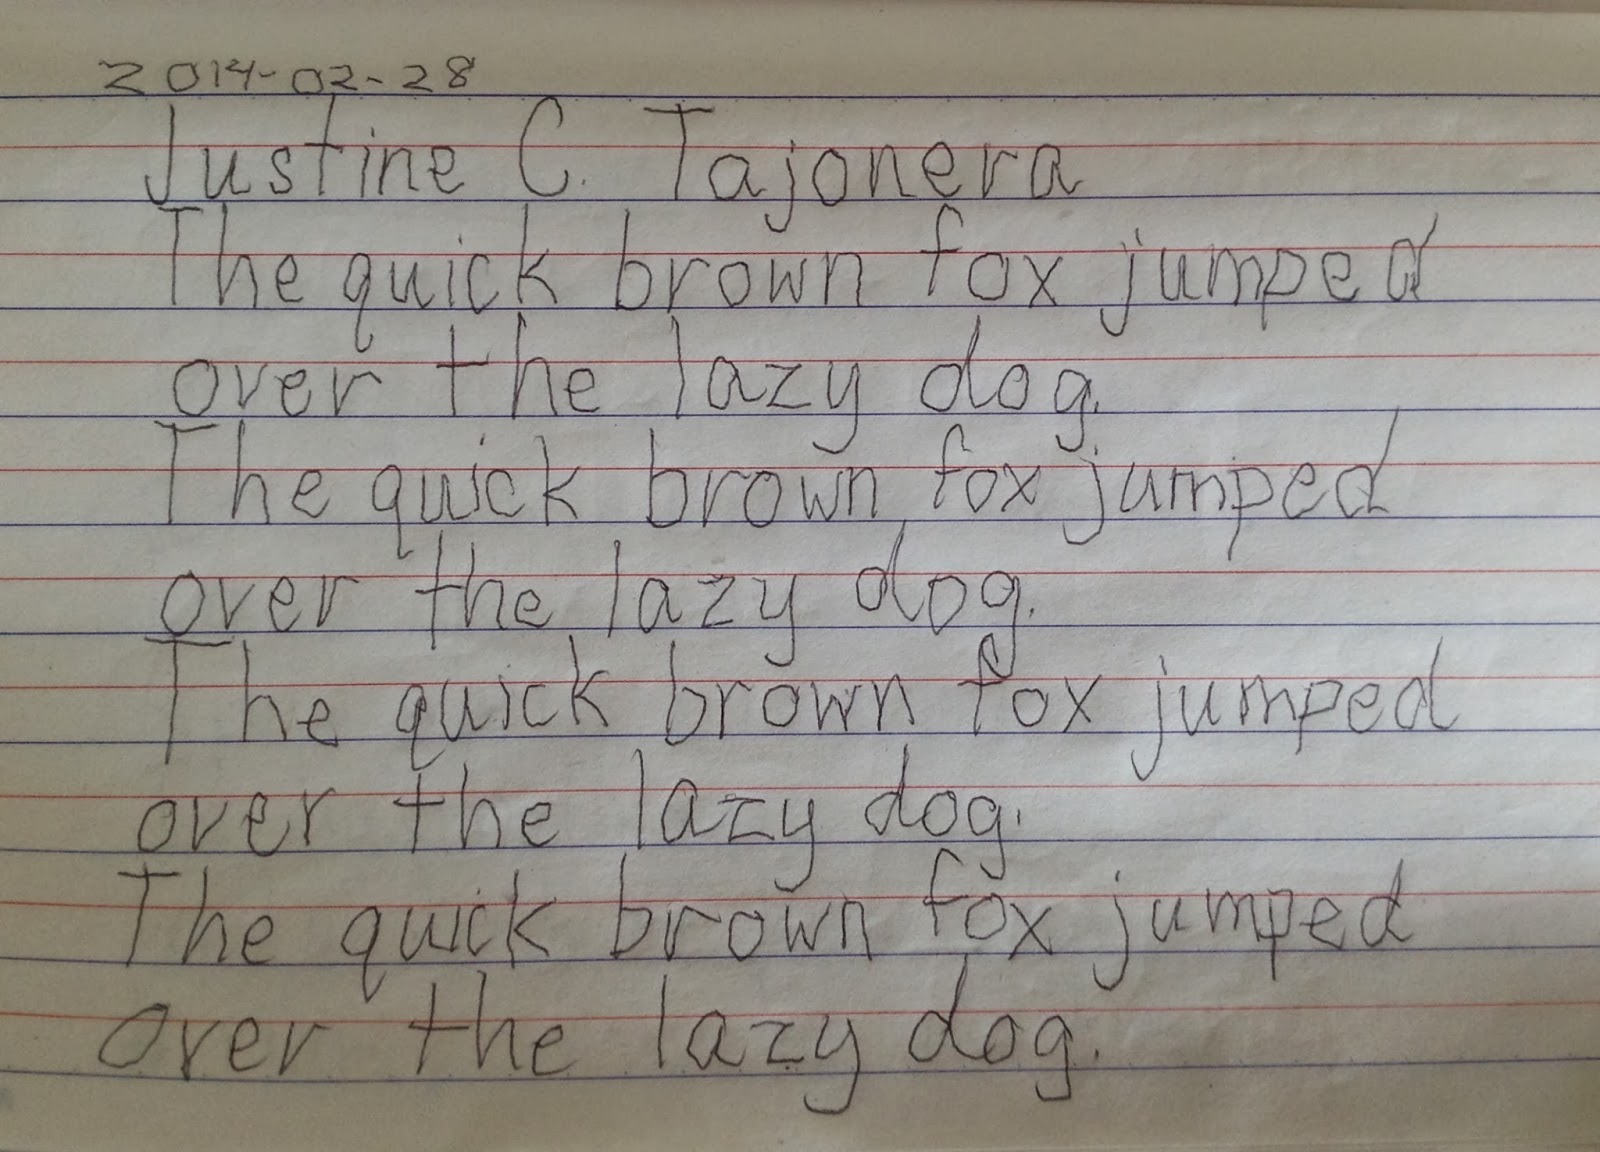 2014-02-28
Justine C. Tajonera
The quick brown fox jumped
over the lazy dog.
The quick brown fox jumped
over the lazy dog.
The quick brown fox jumped
over the lazy dog.
The quick brown fox jumped
over the lazy dog.